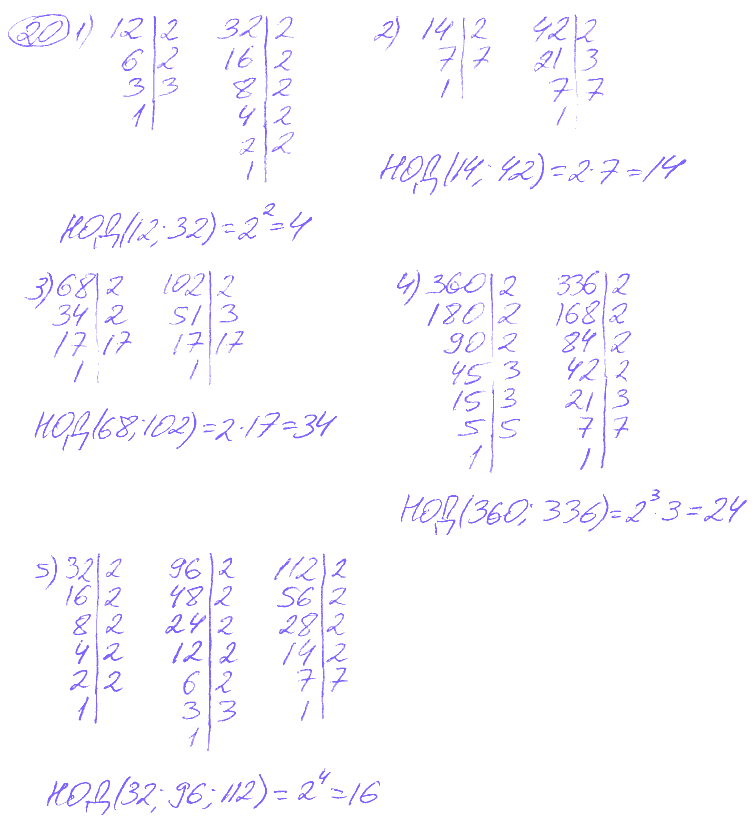 20 1) 12 | 2 32 | 2
6 | 2 16 | 2
3 | 3 8 | 2
1 | 4 | 2
2 | 2
1 |
НОД(12; 32) = 2² = 4
2) 14 | 2 42 | 2
7 | 7 21 | 3
1 | 7 | 7
1 |
НОД(14; 42) = 2·7 = 14
3) 68 | 2 102 | 2
34 | 2 51 | 3
17 | 17 17 | 17
1 | 1 |
НОД(68; 102) = 2·17 = 34
4) 360 | 2 336 | 2
180 | 2 168 | 2
90 | 2 84 | 2
45 | 3 42 | 2
15 | 3 21 | 3
5 | 5 7 | 7
1 | 1 |
НОД(360; 336) = 2³·3 = 24
5) 32 | 2 96 | 2 112 | 2
16 | 2 48 | 2 56 | 2
8 | 2 24 | 2 28 | 2
4 | 2 12 | 2 14 | 2
2 | 2 6 | 2 7 | 7
1 | 3 | 3 1 |
1 |
НОД(32; 96; 112) = 2⁴ = 16